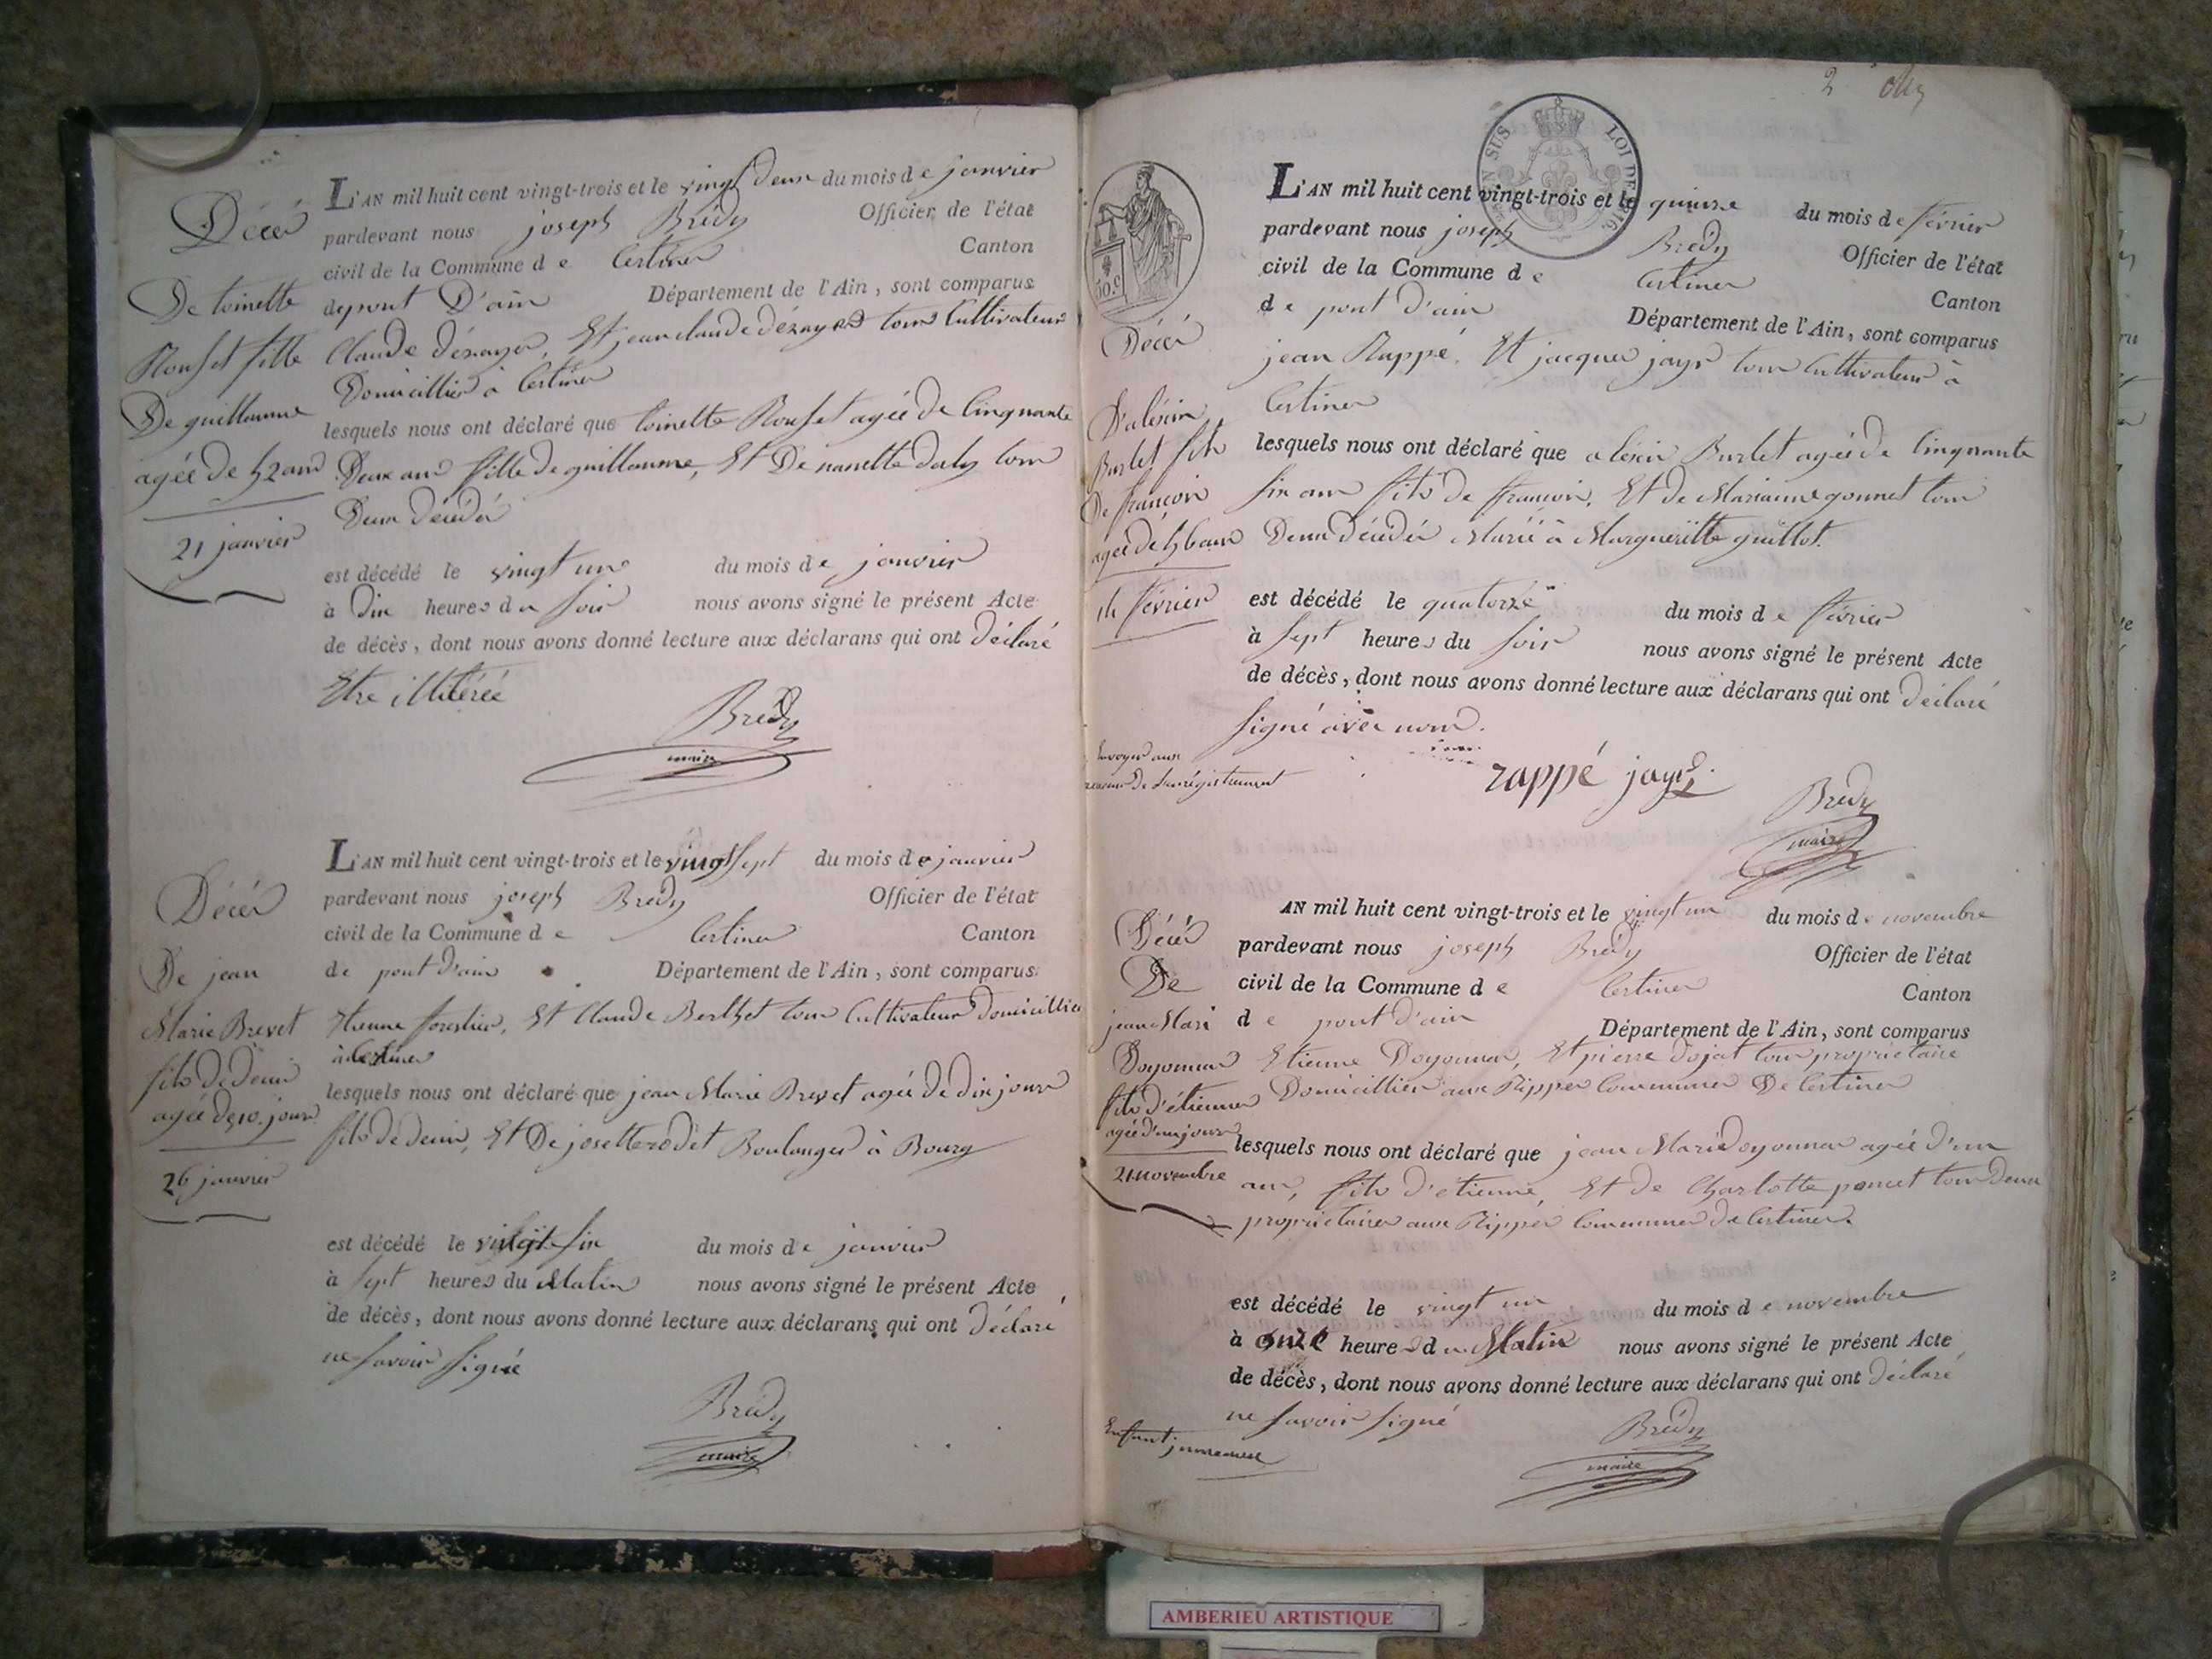 Décés
De toinette
Rouset fille
De guillaume
agée de 52 ans
21 janvier
L'AN mil huit cent vingt-trois et le vingt deux du mois de janvier
pardevant nous joseph Bredy Officier de l'état
civil de la Commune de Certines Canton
de pont D'ain Département de l'Ain, sont comparus
Claude dénayer, Et jean claude dénayer tous Cultivateurs
Domicilliés à Certines
lesquels nous ont déclaré que toinette Rouset agée de Cinquante
Deux ans fille de guillaume, Et De nanette daly tous
Deux décédés
est décédé le vingt une du mois de janvier
à Dix heures du soir nous avons signé le présent Acte
de décès, dont nous avons donné lecture aux déclarans qui ont déclaré
Etre illitérée
Bredy
maire
Décés
De jean
Marie Brevet
fils de denis
agée de 10 jours
26 janvier
L'AN mil huit cent vingt-trois et le vingt sept du mois de janvier
pardevant nous joseph Bredy Officier de l'état
civil de la Commune de Certines Canton
de pont d'ain Département de l'Ain, sont comparus
Etienne forestier, Et Claude Berthet tous Cultivateurs Domicilliés
à Certines
lesquels nous ont déclaré que jean Marie Brevet agée de dix jours
fils de denis, Et De josette rodet Boulanger à Bourg
est décédé le vingt six du mois de janvier
à sept heures du Matin nous avons signé le présent Acte
de décès, dont nous avons donné lecture aux déclarans qui ont déclaré
ne savoir signé
Bredy
maire
2
SUS LOI DE 1816
50.c
Décés
D'aléxis
Burlet fils
De françois
agée de 56 ans
14 février
L'AN mil huit cent vingt-trois et le quinze du mois de février
pardevant nous joseph Bredy Officier de l'état
civil de la Commune de Certines Canton
de pont d'ain Département de l'Ain, sont comparus
jean Rappé, Et jacques jayr tous Cultivateurs à
Certines
lesquels nous ont déclaré que aléxis Burlet agée de Cinquante
six ans fils de françois, Et de Marianne gonnet tous
Deux décédés Marié à Margueritte guillot.
est décédé le quatorze du mois de février
à sept heures du soir nous avons signé le présent Acte
de décès, dont nous avons donné lecture aux déclarans qui ont déclaré
signé avec nous.
Envoyer aux
receveur de L'enrégistrement
rappé jayr
Bredy
maire
Décés
De
jean Mari
Doyonnas
fils d'étienne
agée d'un jours
21 novembre
AN mil huit cent vingt-trois et le vingt un du mois de novembre
pardevant nous joseph Bredy Officier de l'état
civil de la Commune de Certines Canton
de pont d'ain Département de l'Ain, sont comparus
Etienne Doyonnas, Et pierre dojat tous propriétaire
Domicilliés aux Rippes Communes De Certines
lesquels nous ont déclaré que jean Marie doyonnas agée d'un
ans, fils d'etienne, Et de Charlotte poncet tous deux
propriétaires aux Rippes Communes de Certines.
est décédé le vingt un du mois de novembre
à onze heures du Matin nous avons signé le présent Acte
de décès, dont nous avons donné lecture aux déclarans qui ont déclaré
ne savoir signé
Enfant jumeaux
Bredy
maire
AMBERIEU ARTISTIQUE